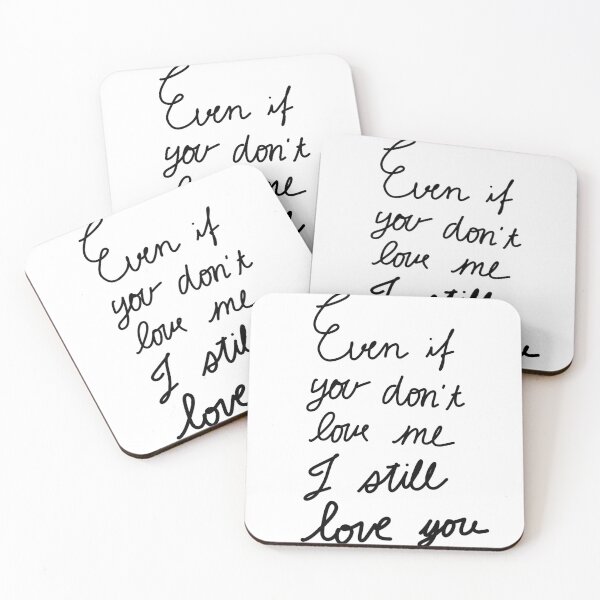 Even if
you don't
me
Even if
you don't
love me
I still
Even if
you don't
love me
I still
love
Even if
you don't
love me
I still
love you